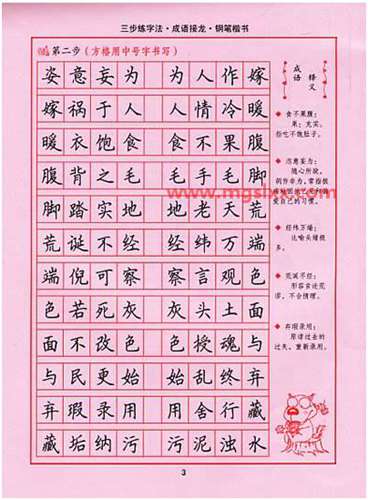 三步练字法·成语接龙·钢笔楷书
第二步(方格用中号字书写)
姿意妄为 为人作嫁
嫁祸于人 人情冷暖
暖衣饱食 食不果腹
腹背之毛 毛手毛脚
脚踏实地 地老天荒
荒诞不经 经纬万端
端倪可察 察言观色
色若死灰 灰头土面
面不改色 色授魂与
与民更始 始乱终弃
弃瑕录用 用舍行藏
藏垢纳污 污泥浊水
成语释义
食不果腹:
果:充实。
指吃不饱肚子。
恣意妄为:
随心所欲,
爱自己的习惯。
经纬万端:
比喻头绪很
多。
荒诞不经:
形容言论荒
谬,不合情理。
弃瑕录用:
原谅过去的
过失,重新录用。
3